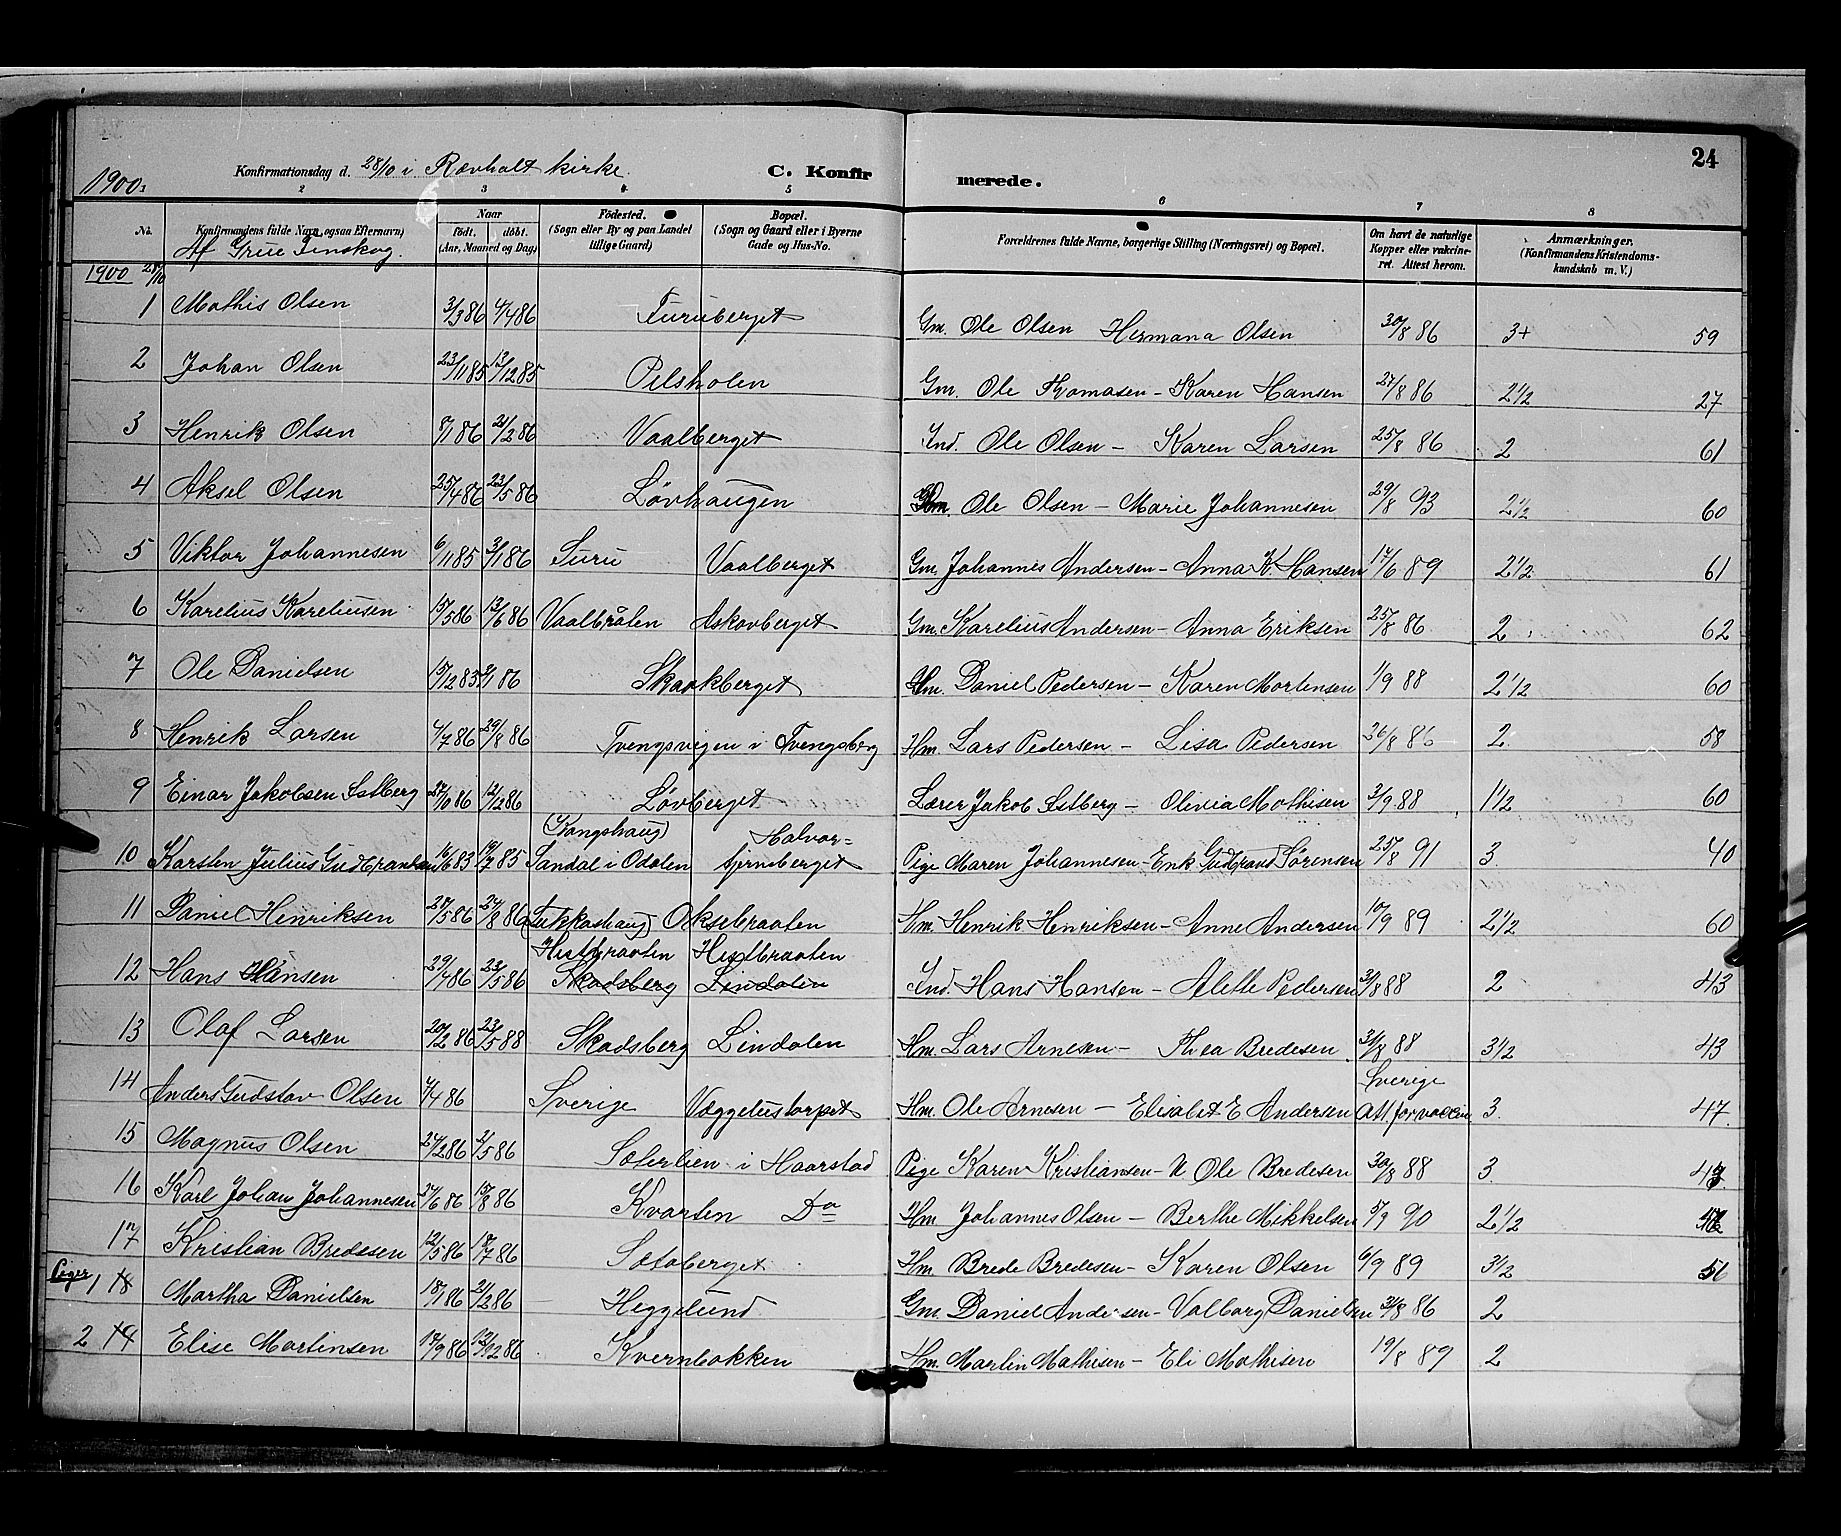 24
1900. Konfirmationsdag d. 28/10 i Rævholt kirke. C. Konfirmerede.
2 3 4 5 6 7 8
No. Konfirmandens fulde Navn (ogsaa Efternavn) Naar født. døbt. (Aar, Maaned og Dag) Fødested. (Sogn eller By og paa Landet tillige Gaard) Bopæl. (Sogn og Gaard eller i Byerne Gade og Hus-No. Forældrenes fulde Navne, borgerlige Stilling (Næringsvei) og Bopæl. Om havt de naturlige Kopper eller vakcineret. Attest herom. Anmærkninger. (Konfirmandens Kristendomskundskab m. V.)
Af Grue Finskog.
1900 28/10
1 Mathis Olsen 3/3 86 4/4 86 Furuberget Gm. Ole Olsen Hermana Olsen 30/8 86 3+ 59
2 Johan Olsen 23/11 85 13/12 85 Pilsholen Gm. Ole Thomasen - Karen Hansen 27/8 86 2 1/2 27
3 Henrik Olsen 8/1 86 21/2 86 Vaalberget Ind. Ole Olsen - Karen Larsen 25/8 86 2 61
4 Aksel Olsen 25/4 86 23/5 86 Løvhaugen Ole Olsen - Marie Johannesen 29/8 93 2 1/2 60
5 Viktor Johannesen 6/11 85 3/1 86 Furu Vaalberget Gm. Johannes Andersen - Anna K. Hansen 17/6 89 2 1/2 61
6 Karelius Kareliusen 15/5 86 13/6 86 Vaalbråten Askovberget Gm. Karelius Andersen - Anna Eriksen 25/8 86 2 62
7 Ole Danielsen 15/12 85 3/1 86 Skaakberget Hm. Daniel Pedersen - Karen Mortensen 1/9 88 2 1/2 60
8 Henrik Larsen 4/7 86 29/8 86 Tvengsvigen i Tvengsberg Hm. Lars Pedersen - Lisa Pedersen 26/8 86 2 58
9 Einar Jakobsen Østberg 27/10 86 12/12 86 Løvberget Lærer Jakob Østberg - Olivia Mathisen 3/9 88 1 1/2 60
10 Karsten Julius Gudbrandsen 16/6 83 19/7 85 (Kongshaug) Sandal i Odalen Halvorstjernsberget Pige Maren Johannesen - Enk. Gudbrand Sørensen 25/8 91 3. 40
11 Daniel Henriksen 27/5 86 24/8 86 (Tukkashaug) Oksebraaten Hm. Henrik Henriksen - Anne Andersen 10/9 89 2 1/2 60
Hestbraaten Hestbraaten
12 Hans Hansen 29/4 86 23/5 86 Skadsberg Lindalen Ind. Hans Hansen - Alette Pedersen 31/8 88 2 43
13 Olaf Larsen 20/2 86 23/5 88 Skadsberg Lindalen Hm. Lars Arnesen - Thea Bredesen 31/8 88 3 1/2 43
14 Anders Gustav Olsen 4/4 86 Sverige Væggetustorpet Hm. Ole Arnesen - Elisabet E Andersen Sverige Att. for vaccine 3. 47
15 Magnus Olsen 24/2 86 2/5 86 Sæterlien i Haarstad Pige Karen Kristiansen - U. Ole Bredesen 30/8 88 3.
16 Karl Johan Johannesen 24/6 86 15/8 86 Kvarten Do Hm. Johannes Olsen - Berthe Mikkelsen 5/9 90 2 1/2
17 Kristian Bredesen 12/5 86 18/7 86 Sætaberget Hm. Brede Bredesen - Karen Olsen 6/9 89 3 1/2 51
Piger 1 18 Martha Danielsen 18/1 86 21/2 86 Heggelund Gm. Daniel Andersen - Valborg Danielsen 31/8 86 2
2 19 Elise Martinsen 17/9 86 12/12 86 Kvernbakken Hm. Martin Mathisen - Eli Mathisen 19/8 89 2